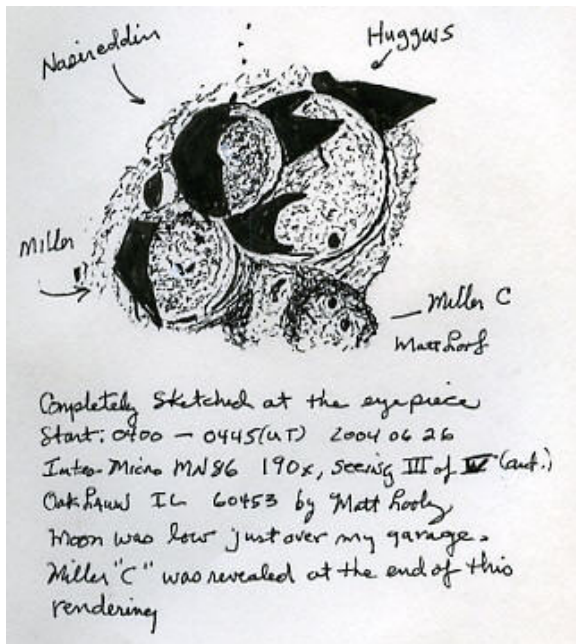 Nasireddin
Huggins
Miller
Miller C
Matt Looby
Completely Sketched at the eyepiece
Start: 0400 – 0445 (UT) 2004 06 26
Intes-Micro MN86 190x, seeing III of IV (ant.)
Oak Lawn IL 60453 by Matt Looby
Moon was low just over my garage.
Miller "C" was revealed at the end of this
rendering